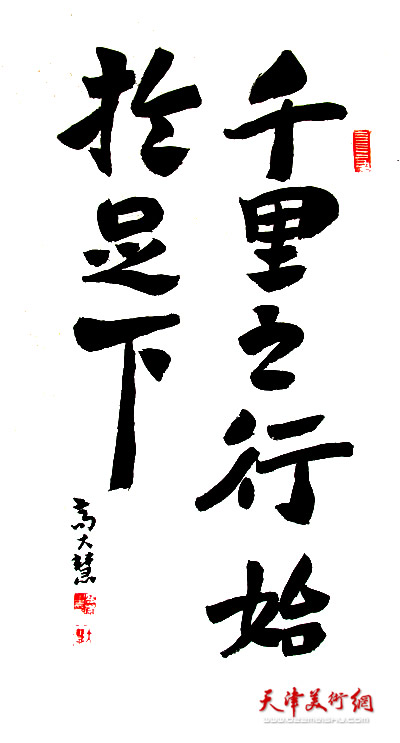 千里之行始
於足下
高大慧
天津美術網